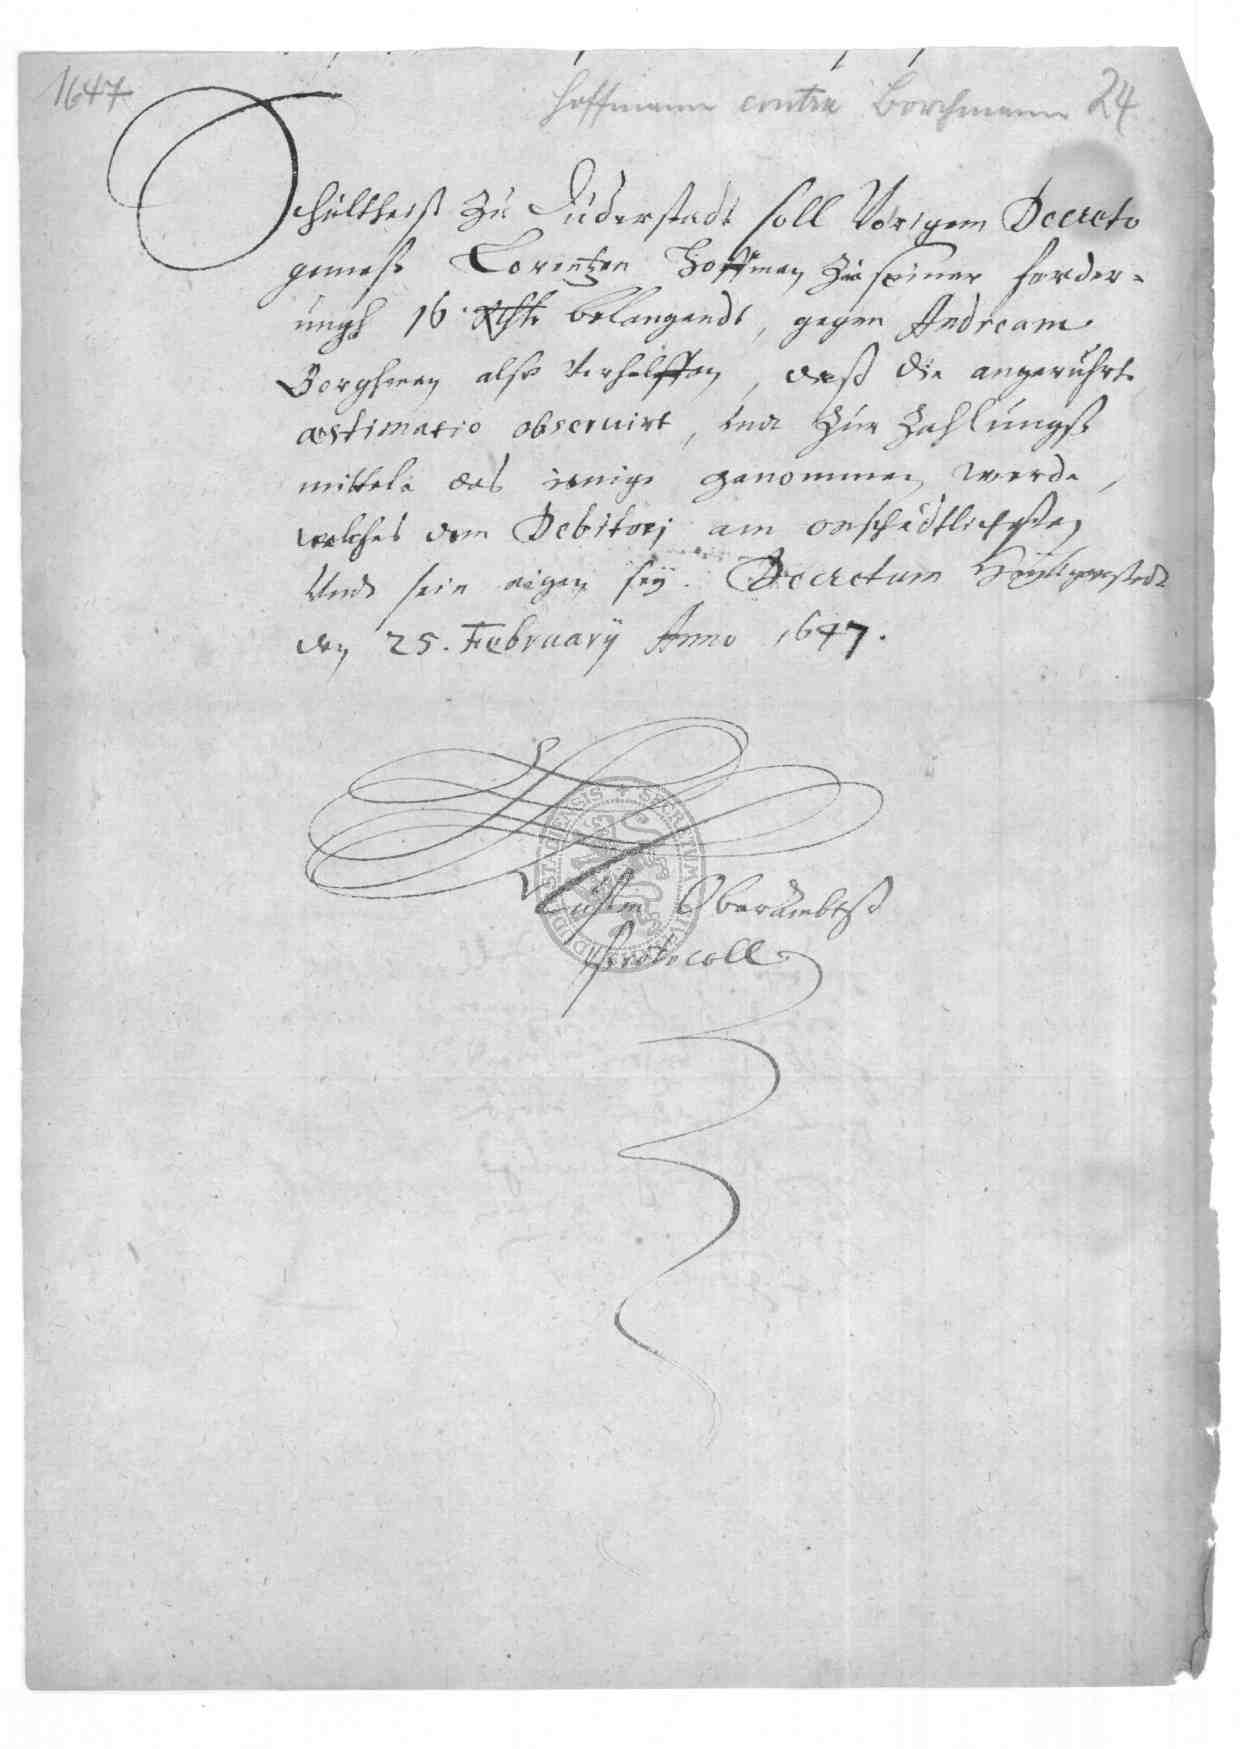 1647
Hoffmann contra Borchmann 24
Schultheiß Zu Duderstadt soll Vorigem Decreto
gemeß Lorentzen Hoffman Zu seiner forder-
ungh 16 Rthlr belangendt, gegen Andream
Borghman also verhelffen, daß die angerührte
æstimatio observirt, und Zur Zahlungß
mittele das ienige genommen werde,
welches dem Debitori am onschedtlichsten
Undt sein eigen seÿ. Decretum Heÿligenstadt
den 25. Februarÿ Anno 1647.
SECRETUM CIVITATIS DUDERSTADIENSIS
Oberambtß
Protocoll